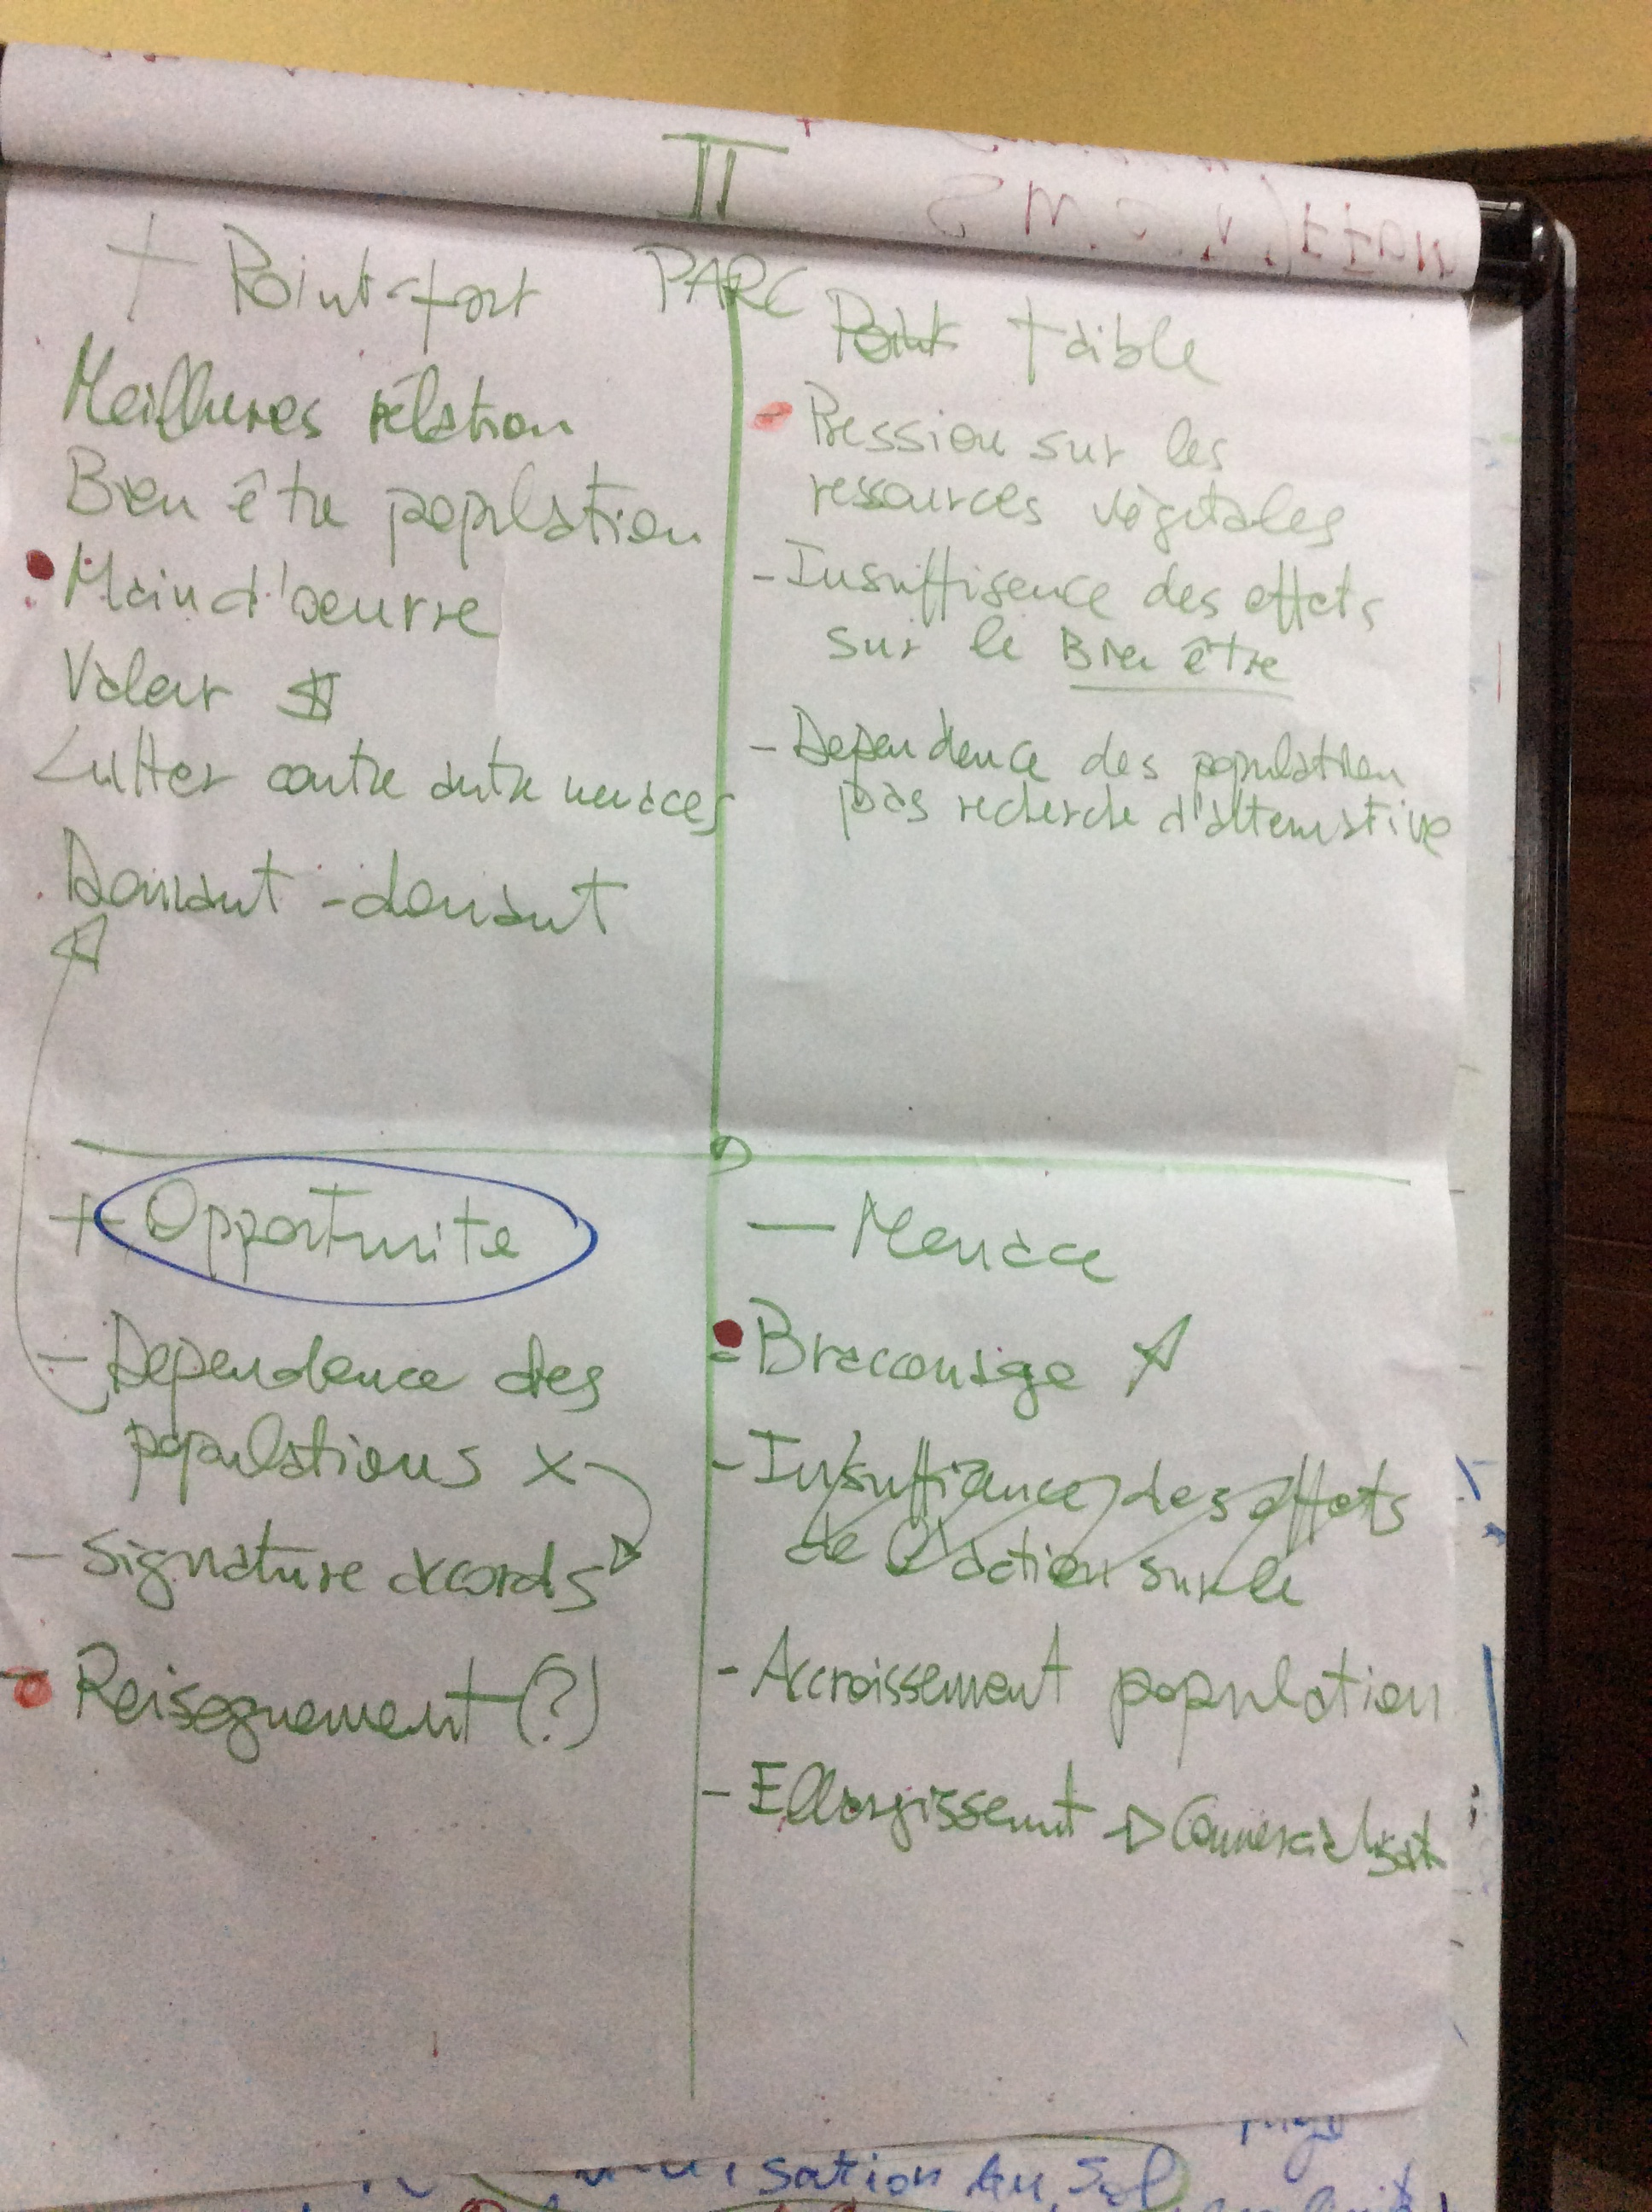 II
PARC
+ Point-fort
Meillures rélation
Bien être population
Main d'oeuvre
Valeur $
Lutter contre autre menaces
Donnant - donnant
Point faible
- Pression sur les
ressources végétales
- Insuffisence des effets
sur le Bien être
- Dependence des population
pas recherche d'alternative
+ Opportunite
- Dependence des
populations x
- signature accords
- Reisegnement (?)
- Menace
- Bracconage
- Insuffiance des effets
de l'action sur le
- Accroissement population
- Ellargissemt → Commercialisat
sation du Sol